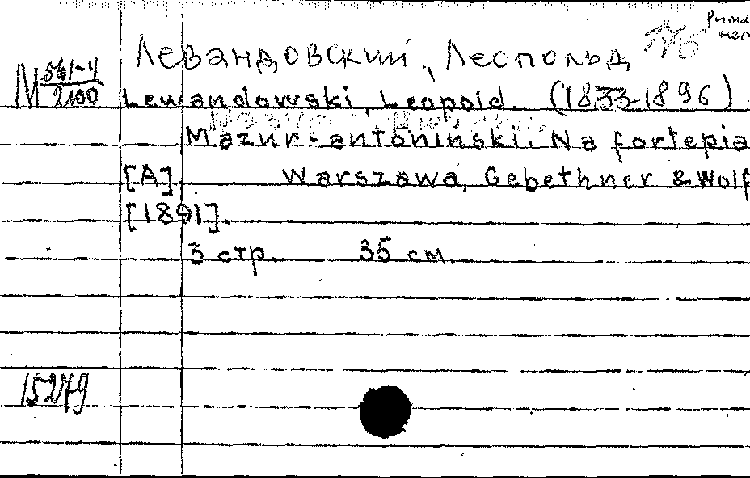 Левандовский, Леопольд
М 561-4
2100
Lewandowski, Leopold. (1833-1896)
Mazur-antoninski. Na fortepia
[A]. Warszawa, Gebethner & Wolf
[1891].
3 стр. 35 см.
15279